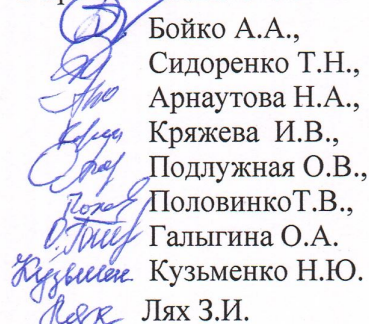 Бойко А.А.,
Сидоренко Т.Н.,
Арнаутова Н.А.,
Кряжева И.В.,
Подлужная О.В.,
ПоловинкоТ.В.,
Галыгина О.А.
Кузьменко Н.Ю.
Лях З.И.